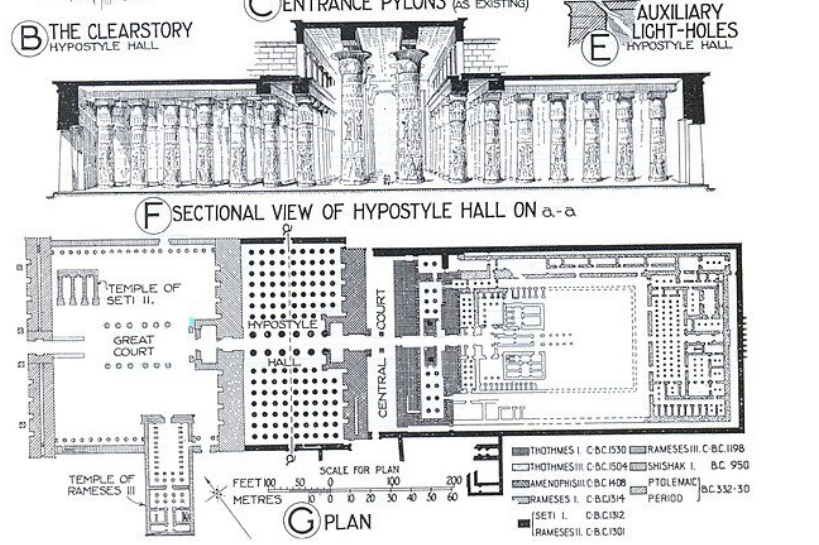 C ENTRANCE PYLONS (AS EXISTING)
B THE CLEARSTORY
HYPOSTYLE HALL
AUXILIARY
LIGHT-HOLES
E HYPOSTYLE HALL
F SECTIONAL VIEW OF HYPOSTYLE HALL ON a-a
TEMPLE OF
SETI II.
GREAT
COURT
HYPOSTYLE
HALL
CENTRAL COURT
TEMPLE OF
RAMESES III
SCALE FOR PLAN
FEET 100 50 0 100 200
METRES 10 0 10 20 30 40 50 60
G PLAN
THOTHMES I. C·B.C.1530
THOTHMES III. C·B.C.1504
AMENOPHIS III. C·B.C.1408
RAMESES I. C·B.C.1314
SETI I. C·B.C.1312
RAMESES II. C·B.C.1301
RAMESES III. C·B.C.1198
SHISHAK I. B.C. 950
PTOLEMAIC
PERIOD
B.C.332-30